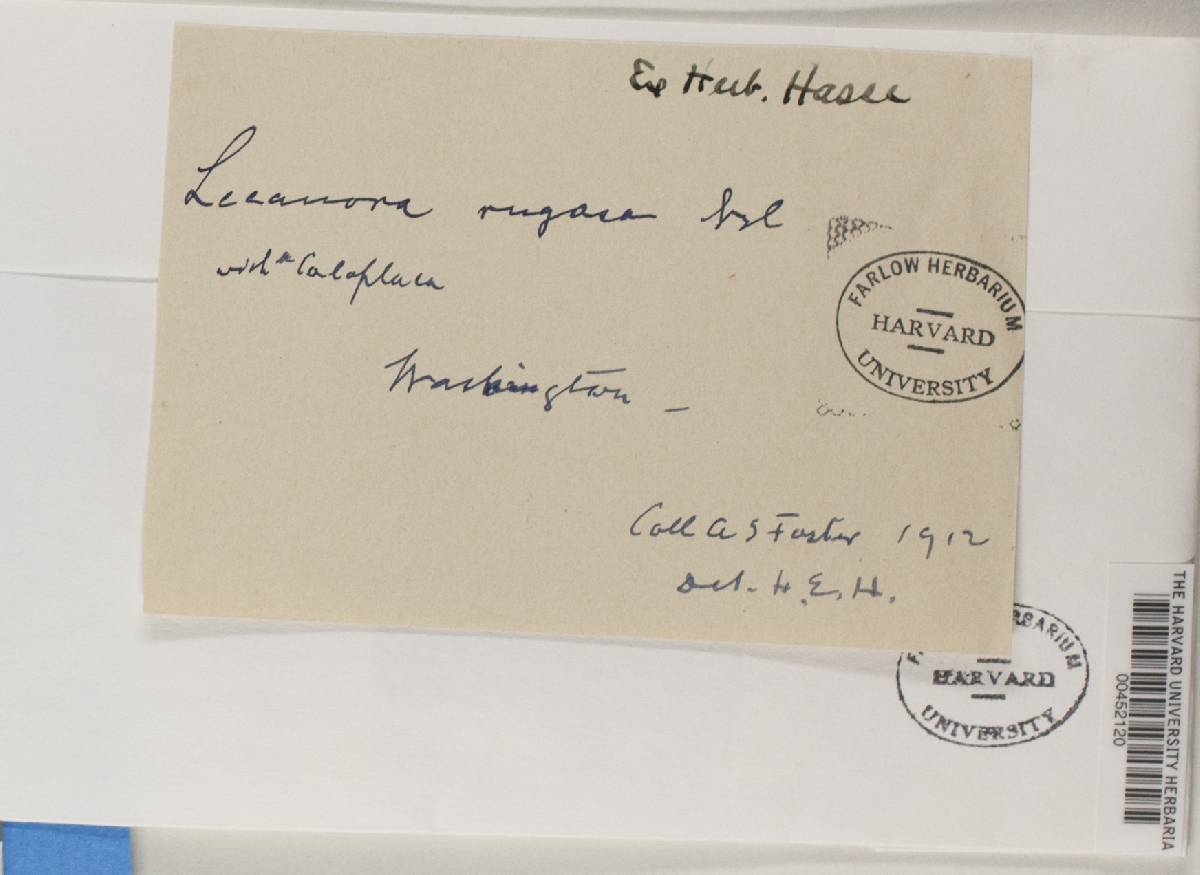 Ex Herb. Hasse
Lecanora rugosa Nyl
with Caloplaca
FARLOW HERBARIUM
HARVARD
UNIVERSITY
Washington –
Coll A S Foster 1912
Det. H. E. H.
HARVARD
UNIVERSITY
THE HARVARD UNIVERSITY HERBARIA
00452120